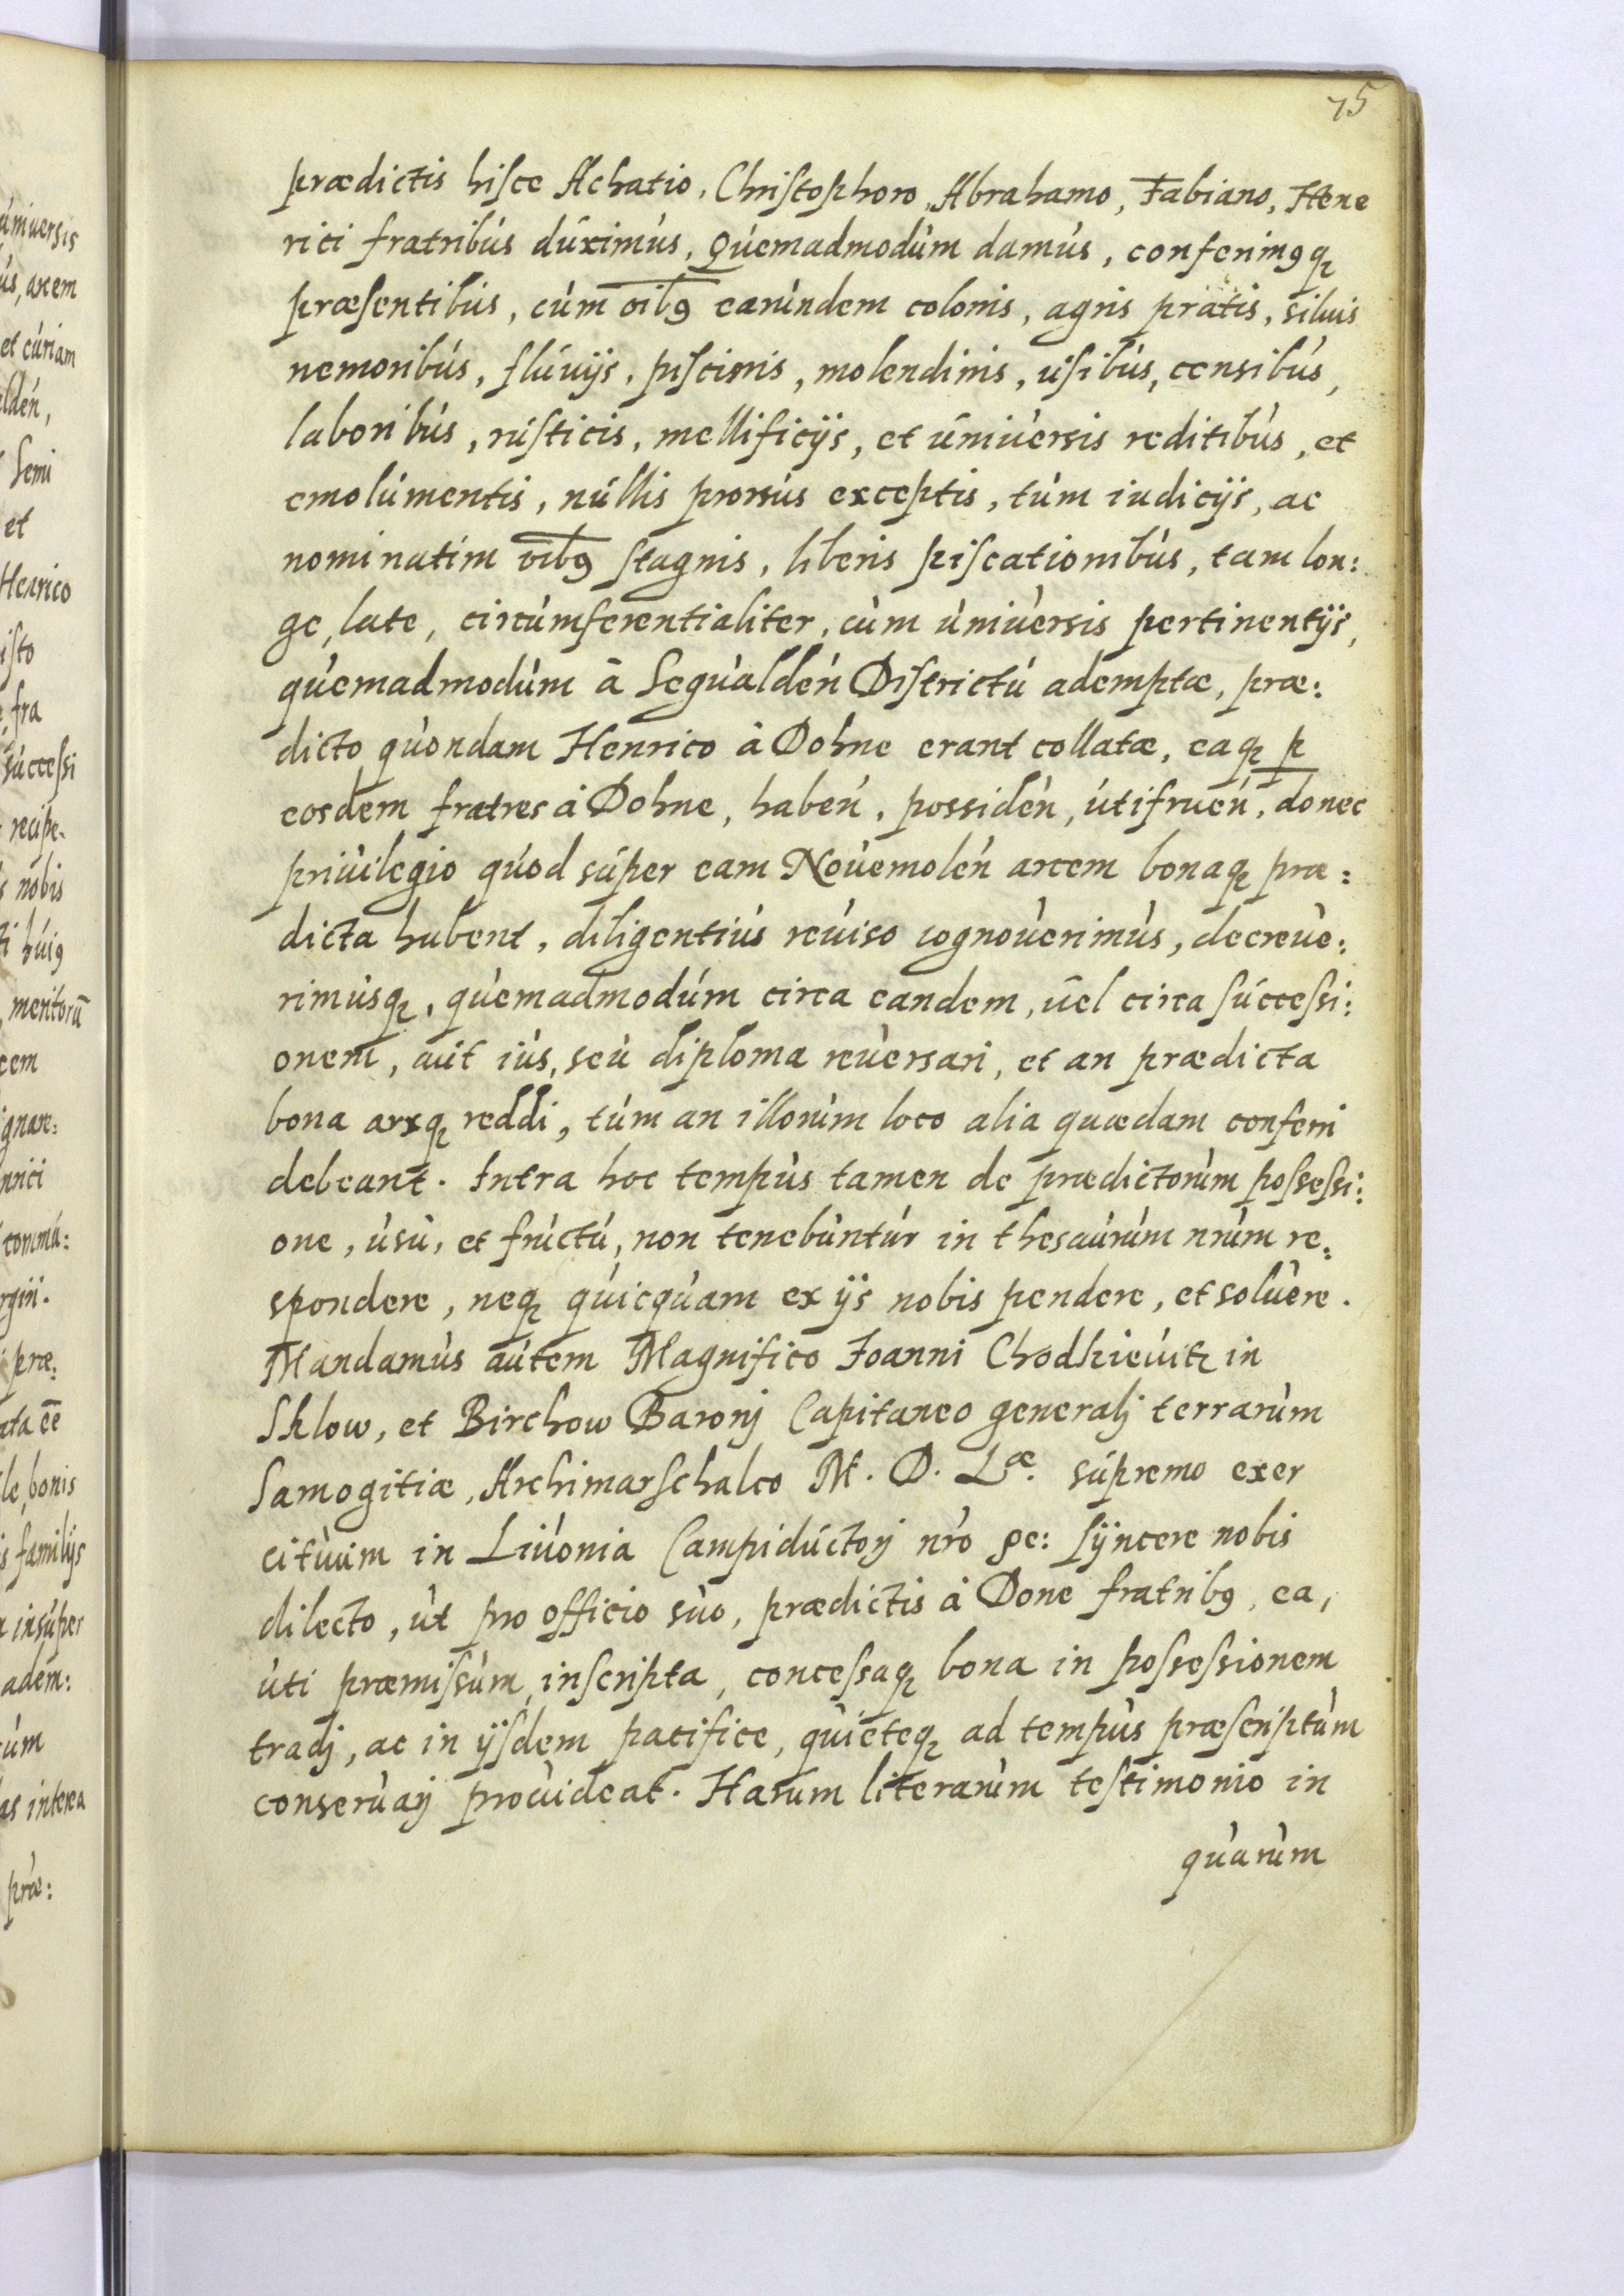 75
prædictis hisce Achatio, Christophoro, Abrahamo, Fabiano, Hene
rici fratribús dúximús, Qúemadmodúm damús, conferimꝰqꝫ
præsentibús, cúm oibꝰ earúndem colonis, agris pratis, siluis
nemoribús, flúuijs, piscinis, molendinis, usibús, censibús,
laboribús, rústicis, mellificijs, et úniúersis reditibús, et
emolúmentis, núllis prorsús exceptis, túm iudicijs, ac
nominatim oibꝰ stagnis, liberis piscationibús, tam lon:
ge, late, circúmferentialiter, cúm úniúersis pertinentijs,
qúemadmodúm â Segúaldeń Districtú ademptæ, præ:
dicto qúondam Henrico â Dohne erant collatæ, eaqꝫ p̲
eosdem fratres â Dohne, habeń, possideń, útifrueń, donec
priúilegio qúod súper eam Noúemoleń arcem bonaqꝫ præ:
dicta habent, diligentiús reúiso cognoúerimús, decreúe:
rimúsqꝫ, qúemadmodúm circa eandem, úel circa súccessi:
onem, aút iús, seú diploma reúersari, et an prædicta
bona arxqꝫ reddi, túm an illorúm loco alia quædam conferri
debeant. Intra hoc tempús tamen de prædictorúm possessi:
one, úsú, et frúctú, non tenebúntúr in thesaúrúm nrúm re:
spondere, neqꝫ qúicqúam ex ijs nobis pendere, et solúere.
Mandamús aútem Magnifico Joanni Chodkieúitz in
Sklow, et Birchow Baronj Capitaneo generalj terrarúm
Samogitiæ, Archimarschalco M. D. Læ. súpremo exer
citúúm in Liúonia Campidúctorj nr̃o ꝛc: sÿncere nobis
dilecto, út pro officio súo, prædictis â Done fratribꝰ, ea,
úti præmissúm, inscripta, concessaqꝫ bona in possessionem
tradj, ac in ijsdem pacifice, qúieteqꝫ ad tempús præscriptúm
conserúarj proúideat. Harum literarúm testimonio in
qúarúm